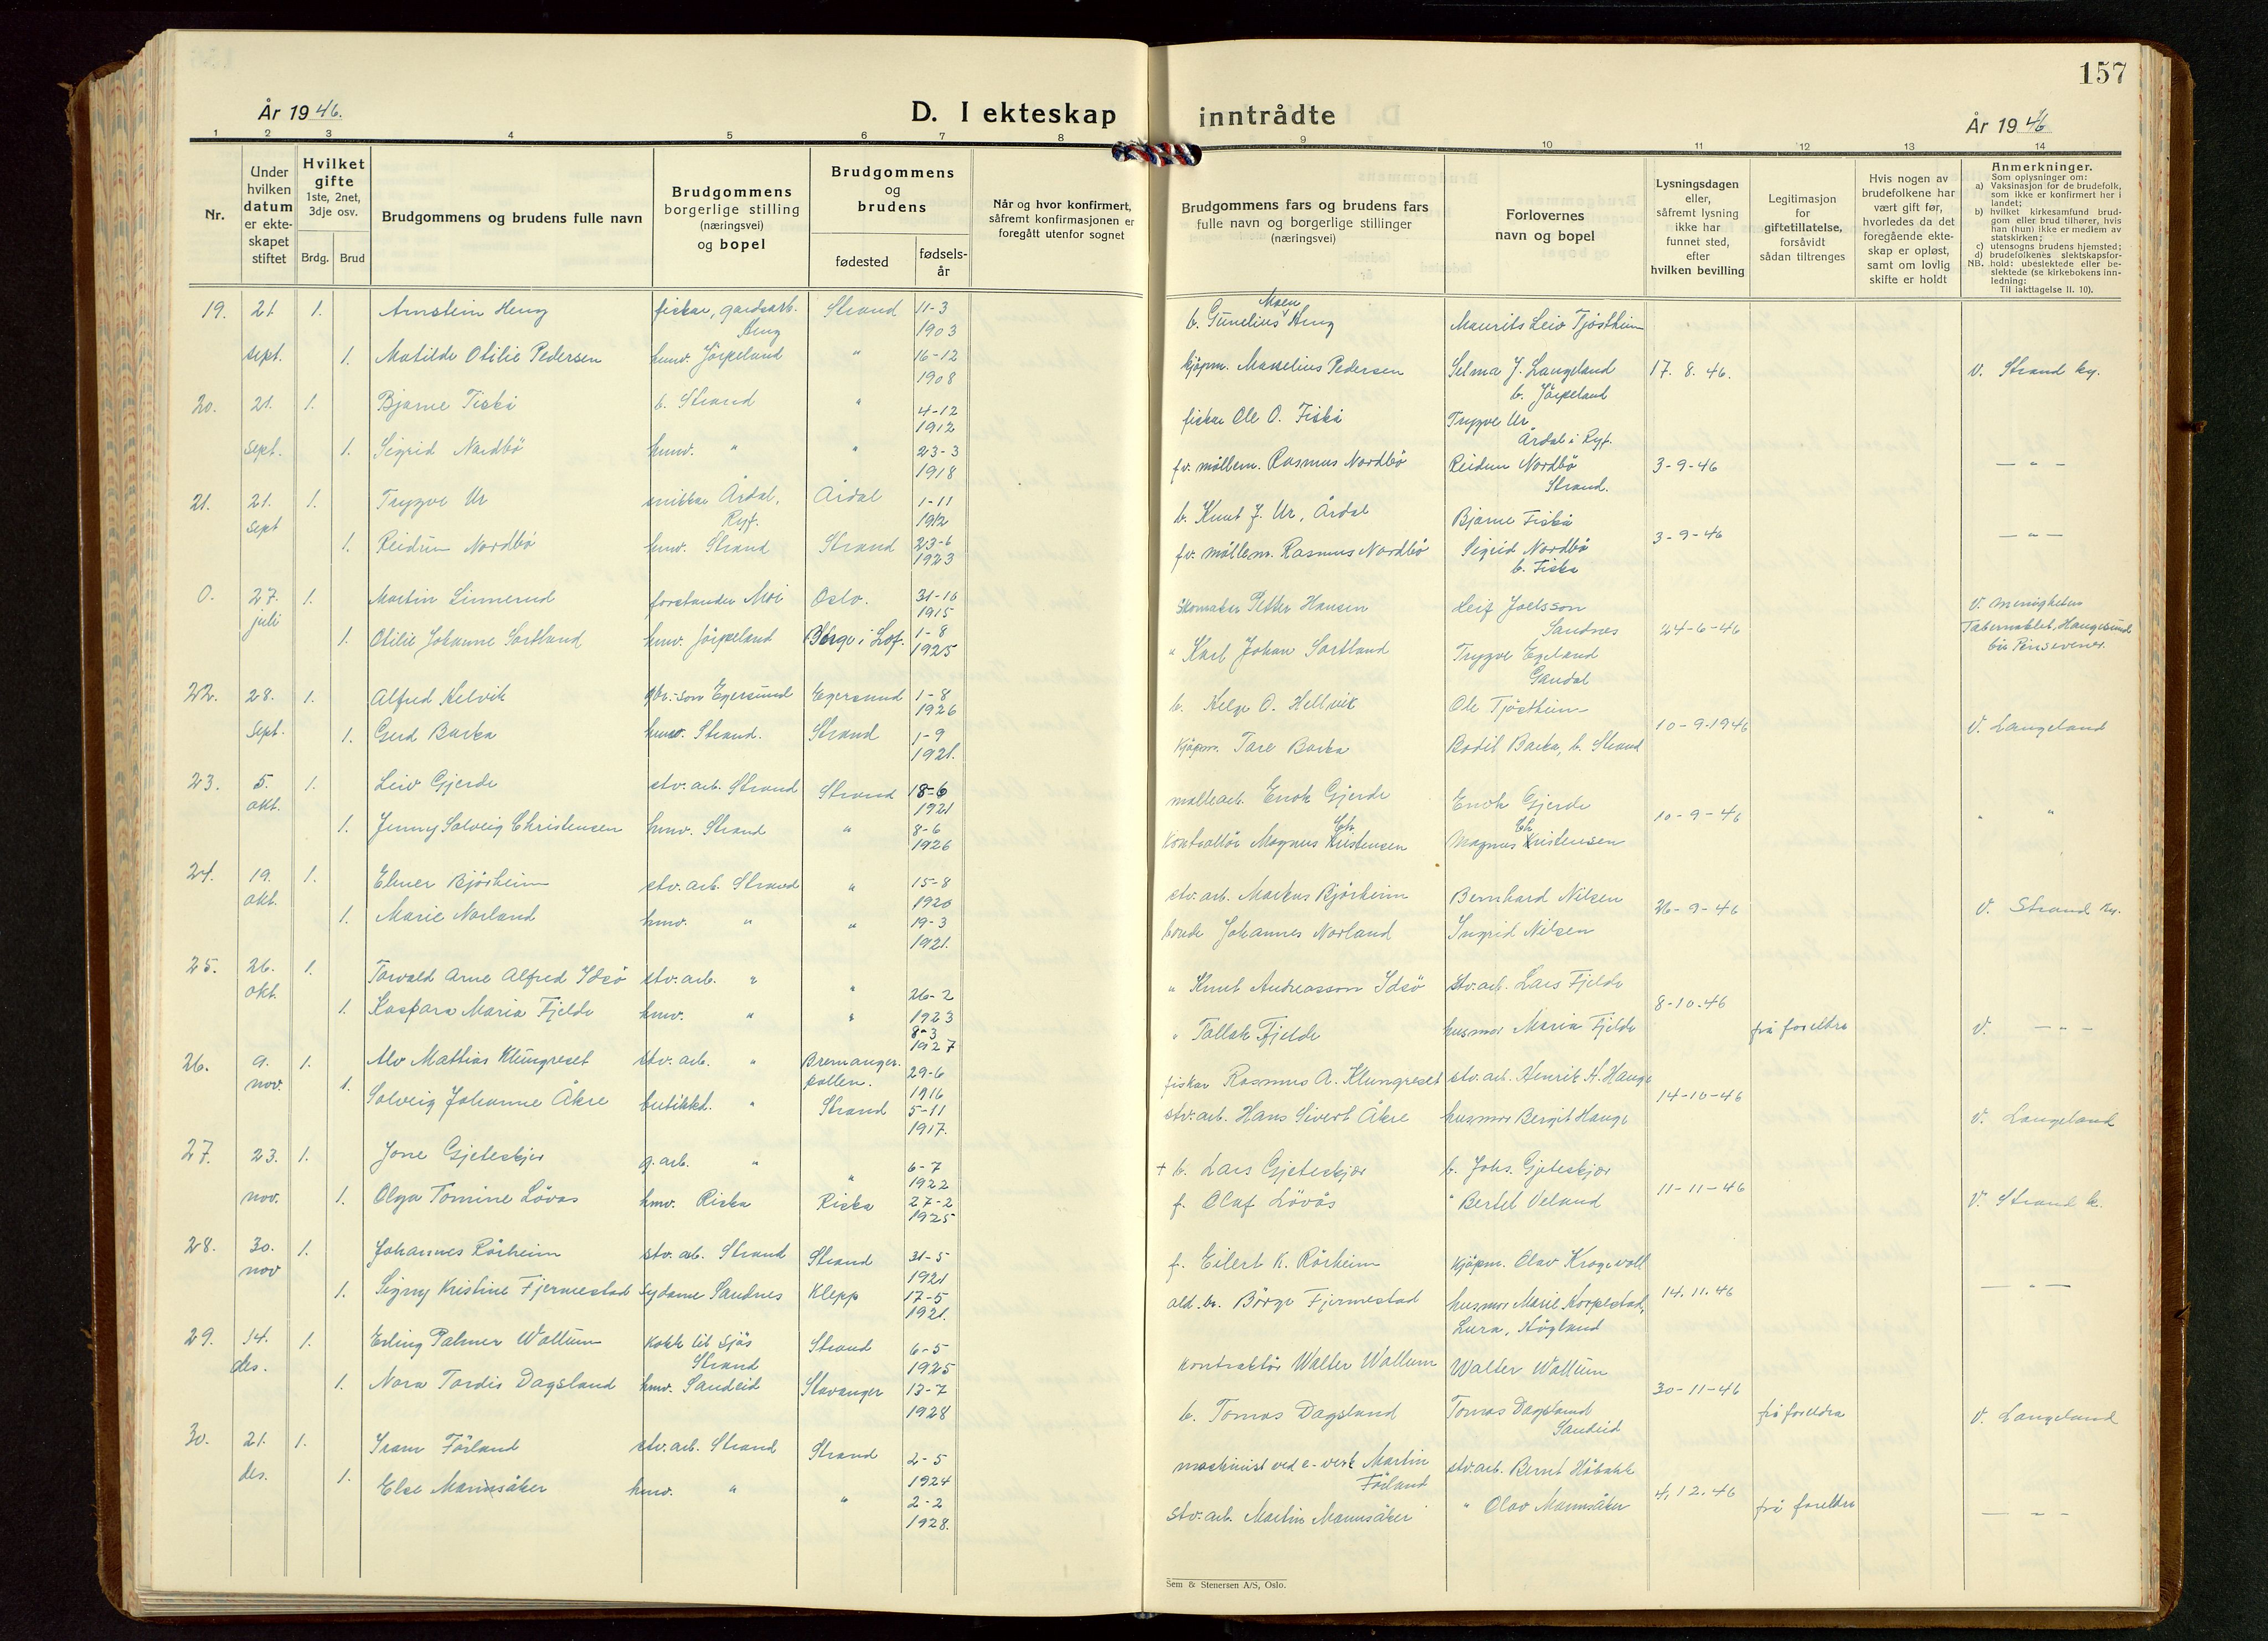 157
År 1946.
D. I ekteskap inntrådte
År 1946
1 2 3 4 5 6 7 8 9 10 11 12 13 14
Nr.
Under hvilken datum er ekteskapet stiftet
Hvilket gifte 1ste, 2net, 3dje osv.
Brdg. Brud
Brudgommens og brudens fulle navn
Brudgommens borgerlige stilling (næringsvei) og bopel
Brudgommens og brudens
fødested
fødsels-år
Når og hvor konfirmert, såfremt konfirmasjonen er foregått utenfor sognet
Brudgommens fars og brudens fars fulle navn og borgerlige stillinger (næringsvei)
Forlovernes navn og bopel
Lysningsdagen eller, såfremt lysning ikke har funnet sted, efter hvilken bevilling
Legitimasjon for giftetillatelse, forsåvidt sådan tiltrenges
Hvis nogen av brudefolkene har vært gift før, hvorledes da det foregående ekteskap er opløst, samt om lovlig skifte er holdt
Anmerkninger.
Som oplysninger om:
a) Vaksinasjon for de brudefolk, som ikke er konfirmert her i landet;
b) hvilket kirkesamfund brudgom eller brud tilhører, hvis han (hun) ikke er medlem av statskirken;
c) utensogns brudens hjemsted;
d) brudefolkenes slektskapsforhold: ubeslektede eller beslektede (se kirkebokens innledning:
NB.
Til iakttagelse II. 10).
19. 21. 1. Arnstein Heng fiskar, gardsarb. Heng Strand 11-3 1903 b. Gunelius Moen Heng Maurits Leiv Tjöstheim
sept. 1. Matilde Otilie Pedersen hmv. Jörpeland " 16-12 1908 kjöpm. Masselius Pedersen Selma J. Langeland b. Jörpeland 17. 8. 46. V. Strand ky.
20. 21. 1. Bjarne Fiskå b. Strand " 4-12 1912 fiskar Ole O. Fiskå Trygve Ur Årdal i Ryf.
sept. 1. Sigrid Nordbö hmv. " " 23-3 1918 fv. möllem. Rasmus Nordbö Reidun Nordbö Strand. 3-9-46 — " —
21. 21. 1. Trygve Ur snikkar Årdal, Ryf. Årdal 1-11 1912 b. Knut J. Ur, Årdal Bjarne Fiskå
sept 1. Reidun Nordbö hmv. Strand Strand 23-6 1923 fv. möllem. Rasmus Nordbö Sigrid Nordbö b. Fiskå 3-9-46 — " —
0. 27. 1. Martin Linnerud forstander Moi Oslo. 31-10 1915 Skomaker Petter Hansen Leif Joelsson Sandnes V. menigheten
juli 1. Otilie Johanne Sortland hmv. Jörpeland Börge i Lof. 1-8 1925 " Karl Johan Sortland Trygve Egeland Gandal 24-6-46 Tabernaklet, Haugesund
22. 28. 1. Alfred Helvik gbr.-son Egersund Egersund 1-8 1926 b. Helge O. Hellvik Ole Tjöstheim
sept. 1. Gerd Barka hmv. Strand. Strand 1-9 1921. Kjöpm. Tore Barka Bodil Barka, b. Strand 10-9-1946 V. Langeland
23. 5. 1. Leiv Gjerde stv. arb. Strand Strand 18-6 1921 Enok Gjerde Enok Gjerde
okt. 1. Jenny Solveig Christensen hmv. Strand " 8-6 1926 Kontrollör Magnus Christensen Magnus Christensen 10-9-46 " "
24. 19. 1. Elmer Björheim stv. arb. Strand " 15-8 1920 stv. arb. Markus Björheim Bernhard Nilsen
okt. 1. Marie Norland hmv. " " 19-3 1921. bonde Johannes Norland Ingrid Nilsen 26-9-46 V. Strand ky.
25. 26. 1. Torvald Arne Alfred Idsö stv. arb. " " 26-2 1923 " Knut Andreasson Idsö stv. arb. Lars Fjelde
okt. 1. Kaspara Maria Fjelde hmv. " " 8-3 1927 " Tallak Fjelde husmor Maria Fjelde 8-10-46 frå foreldre V. — " —
26. 9. 1. Alv Mattias Klungreset stv. arb. " Bremanger-pollen. 29-6 1916 fiskar Rasmus A. Klungreset stv. arb. Henrik H. Hauge
nov. 1. Solveig Johanne Åkre butikkd. " Strand 5-11 1917. stv. arb. Hans Sivert Åkre husmor Bergit Hauge 14-10-46 V. Langeland
27. 23. 1. Jone Gjeteskjer g. arb. " " 6-7 1922 + b. Lars Gjeteskjer b. Johs. Gjeteskjer
nov. 1. Olga Tomine Lövås hmv. Riska Riska 27-2 1925 f. Olaf Lövås " Bertel Veland 11-11-46 V. Strand k.
28. 30. 1. Johannes Rörheim stv. arb. Strand Strand 31-5 1921 f. Eilert K. Rörheim Kjöpm. Olav Kragevoll
nov 1. Signy Kristine Fjermestad Sydame Sandnes Klepp 17-5 1921. Börge Fjermestad husmor Marie Horpestad, Lura, Höyland 14. 11. 46 — " —
29. 14. 1. Erling Palmer Wallum Kokk til sjös Strand Strand 6-5 1925 kontraktör Walter Wallum Walter Wallum
des. 1. Nora Tordis Dagsland hmv. Sandeid Stavanger 13-7 1928 b. Tomas Dagsland Tomas Dagsland Sandeid 30-11-46 frå foreldra V. Langeland
30. 21. 1. Förland stv. arb. Strand Strand 2-5 1924 maskinist ved e-verk Martin Förland stv. arb. Bernt
des. 1. Else Mannsåker hmv. " " 2-2 1928. Stv. arb. Martin Mannsåker " Olav Mannsåker 4. 12. 46 frå foreldre — " —
Sem & Stenersen A/S, Oslo.